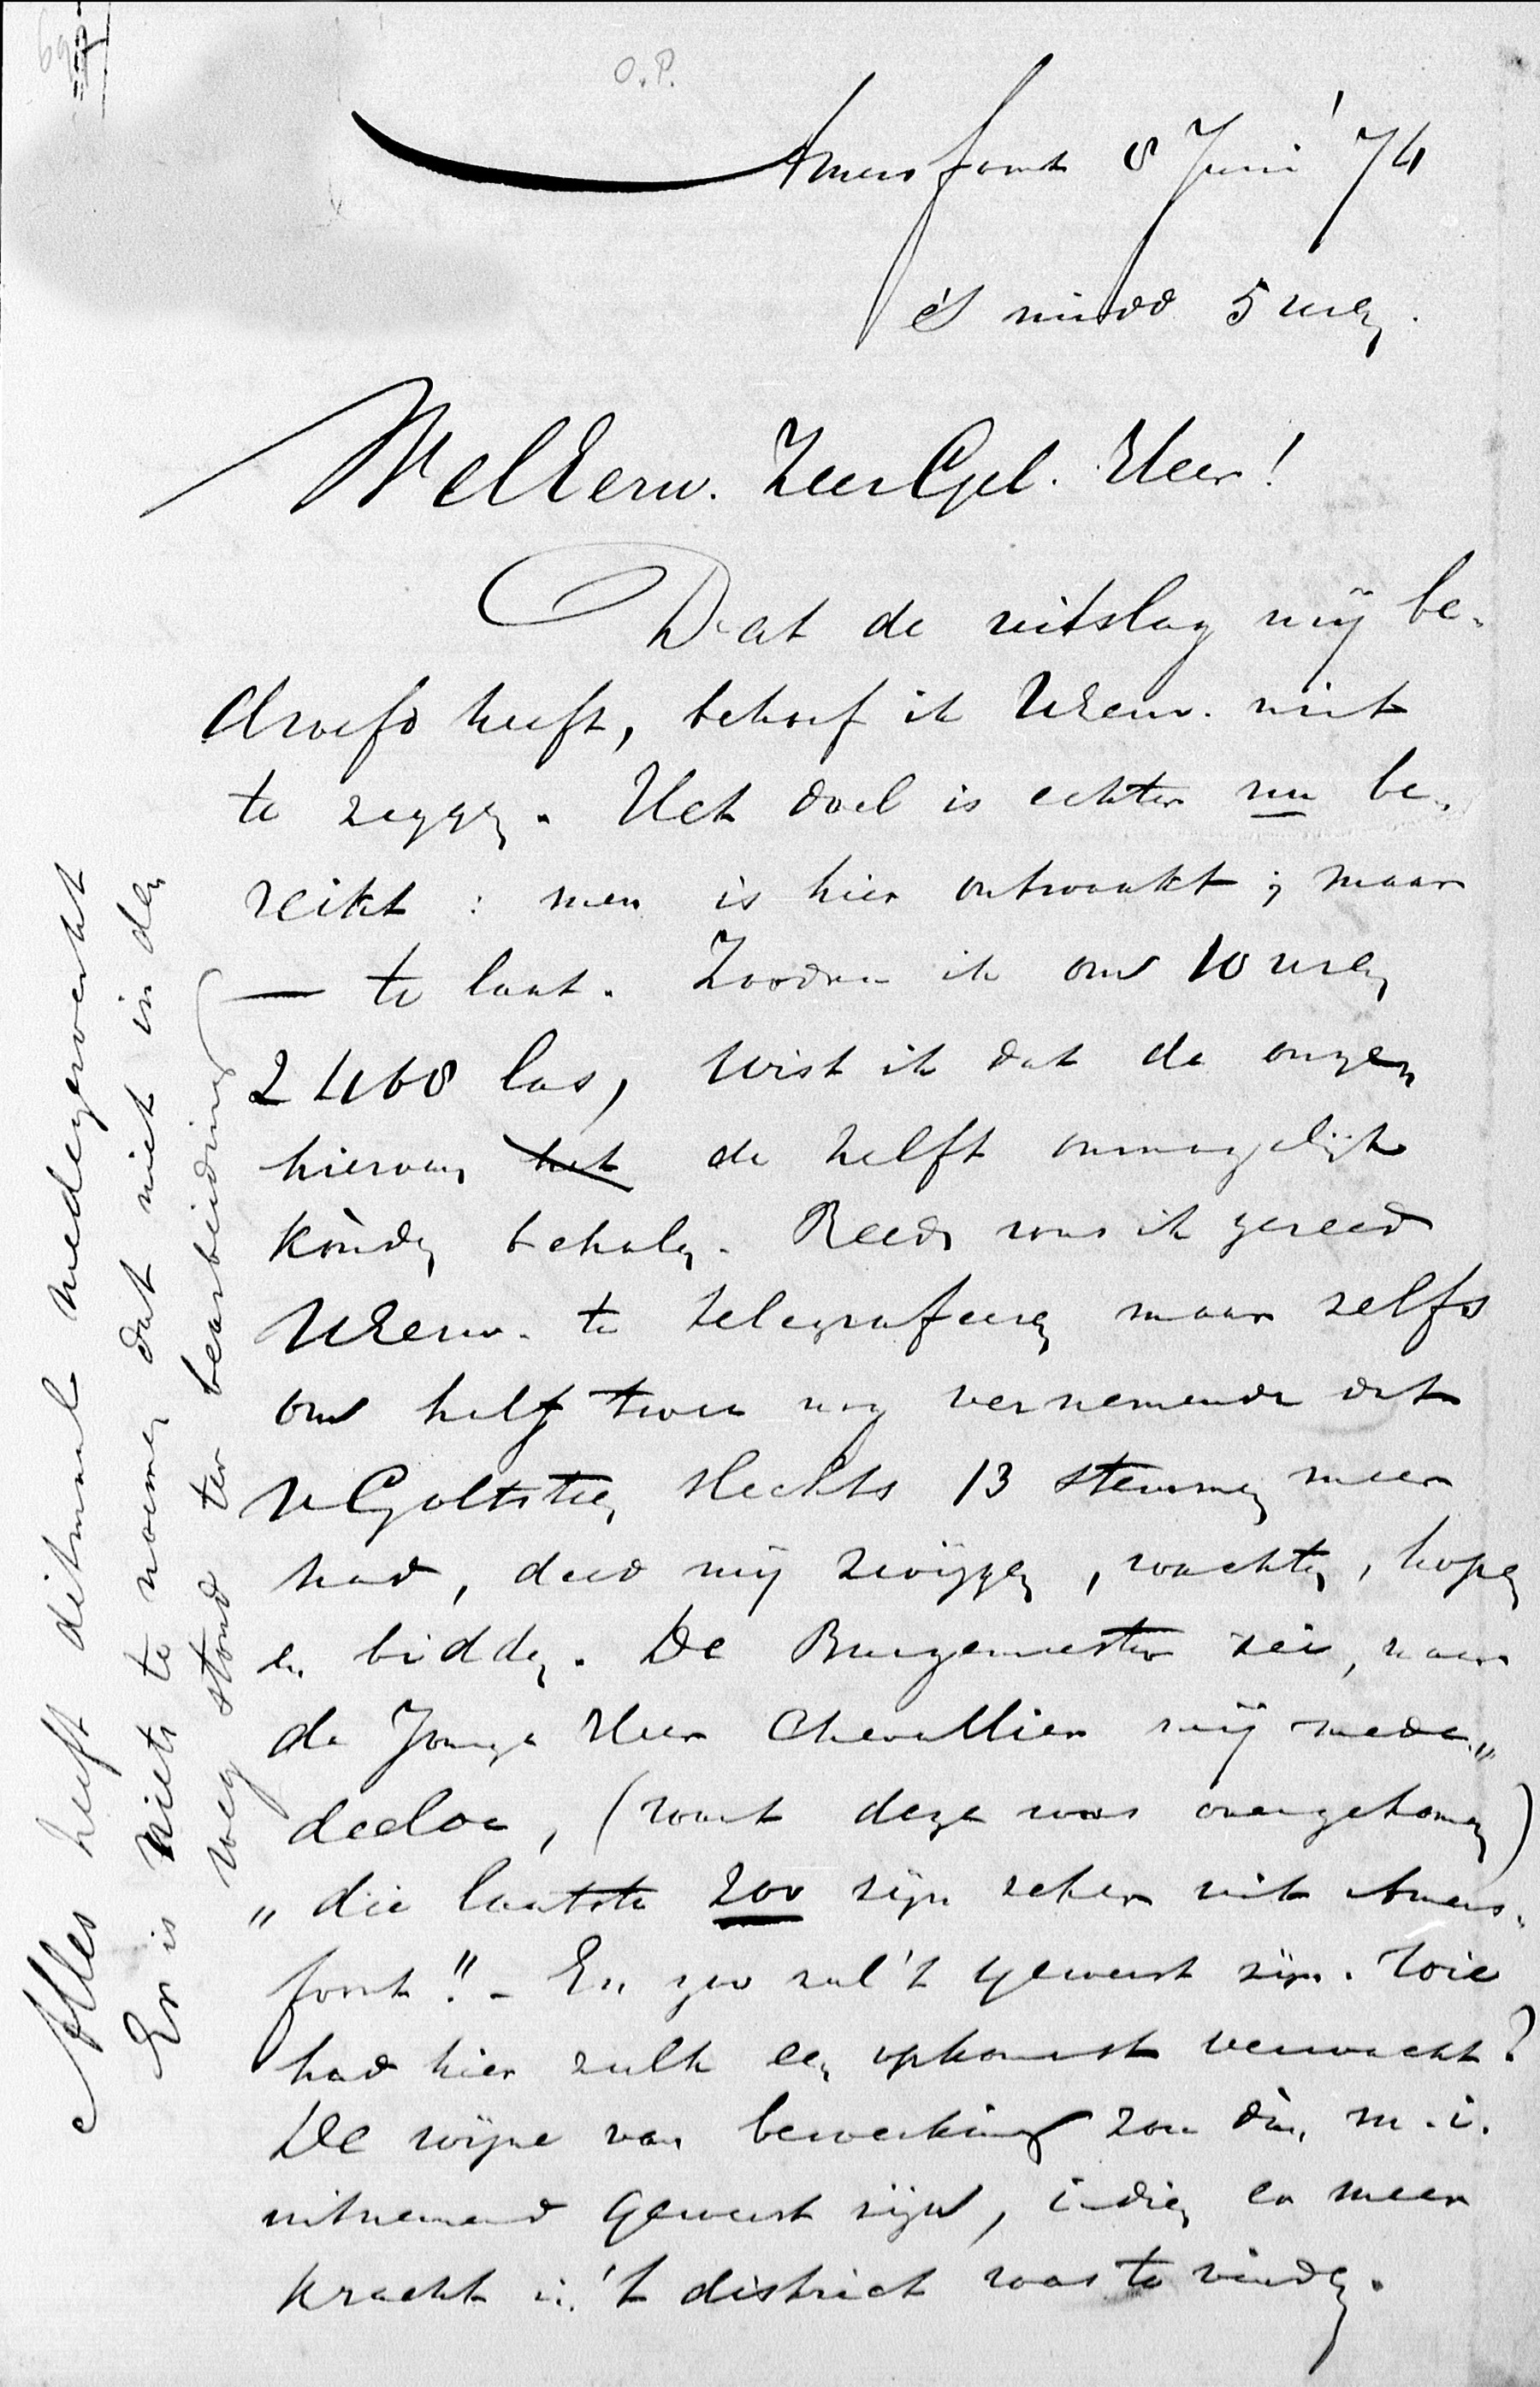 O.P.
Amersfoort 8 Juni '74
's midd 5 uren.
WelEerw. ZeerGel. Heer!
Dat de uitslag mij be-
droefd heeft, behoef ik UEerw. niet
te zeggen. Het doel is echter nu be-
reikt: men is hier ontwaakt; maar
— te laat. Zoodra ik om 10 uren
2468 las, wist ik dat de onzen
hiervan het de helft onmogelijk
kònden behalen. Reeds was ik gereed
UEerw. te telegrafeeren maar zelfs
om half twee nog vernemende dat
v Goltstein slechts 13 stemmen meer
had, deed mij zwijgen, wachten, hopen
en bidden. De Burgemeester zei, naar
de Jonge Heer Chevallier mij mede-
deelde, (want deze was overgekomen)
"die laatste 200 zijn zeker uit Amers-
foort!" - En zoo zal 't geweest zijn. Wie
had hier zulk een opkomst verwacht?
De wijze van bewerking zou dàn m.i.
uitnemend geweest zijn, indien er meer
kracht in 't district was te vinden.
Alles heeft ditmaal medegewerkt
Er is niets te noemen dat niet in den
weg stond ter bearbeiding